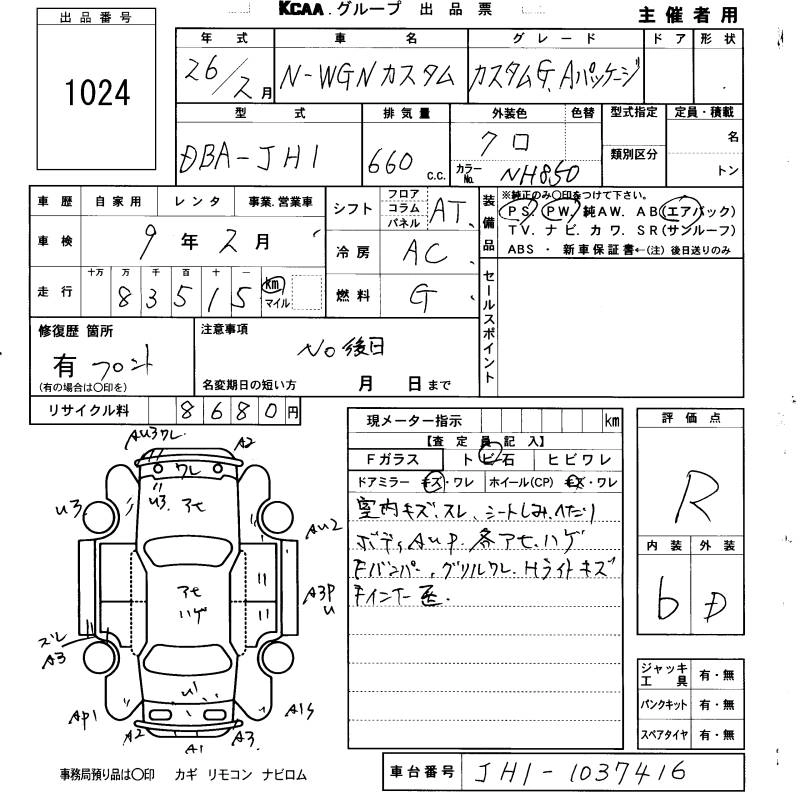 KCAA.グループ 出品票
主催者用
出品番号
1024
年式 車名 グレード ドア 形状
26/2月 N-WGNカスタム カスタムG.Aパッケージ
型式 排気量 外装色 色替 型式指定 定員・積載
DBA-JH1 660 c.c. クロ 類別区分 名
カラーNo. NH850 トン
車歴 自家用 レンタ 事業.営業車
シフト フロア コラム パネル AT.
装備品 ※純正のみ○印をつけて下さい。
PS. PW. 純AW. AB(エアバック)
TV. ナビ. カワ. SR(サンルーフ)
ABS ・ 新車保証書←(注) 後日送りのみ
車検 9年2月
冷房 AC
走行 十万 万 千 百 十 一
83515 km マイル
燃料 G
セールスポイント
修復歴 箇所 注意事項
有 フロント No 後日
(有の場合は○印を) 名変期日の短い方 月 日まで
リサイクル料 8680円
現メーター指示 km
【査定員記入】
Fガラス トビ石 ヒビワレ
ドアミラー キズ・ワレ ホイール(CP) キズ・ワレ
室内キズ、スレ、シートしみ、へたり
ボディAUP.各アセ、ハゲ
Fバンパー、グリルワレ.Hライトキズ
評価点
R
内装 外装
b D
ジャッキ工具 有・無
パンクキット 有・無
スペアタイヤ 有・無
AU3ワレ A2
ワレ
U3 アセ
U3
AU2
アセ
ハゲ
A3P
U
スレ
A3
U
AP1
A1S
A2 A1 A3
事務局預り品は○印 カギ リモコン ナビロム
車台番号 JH1-1037416